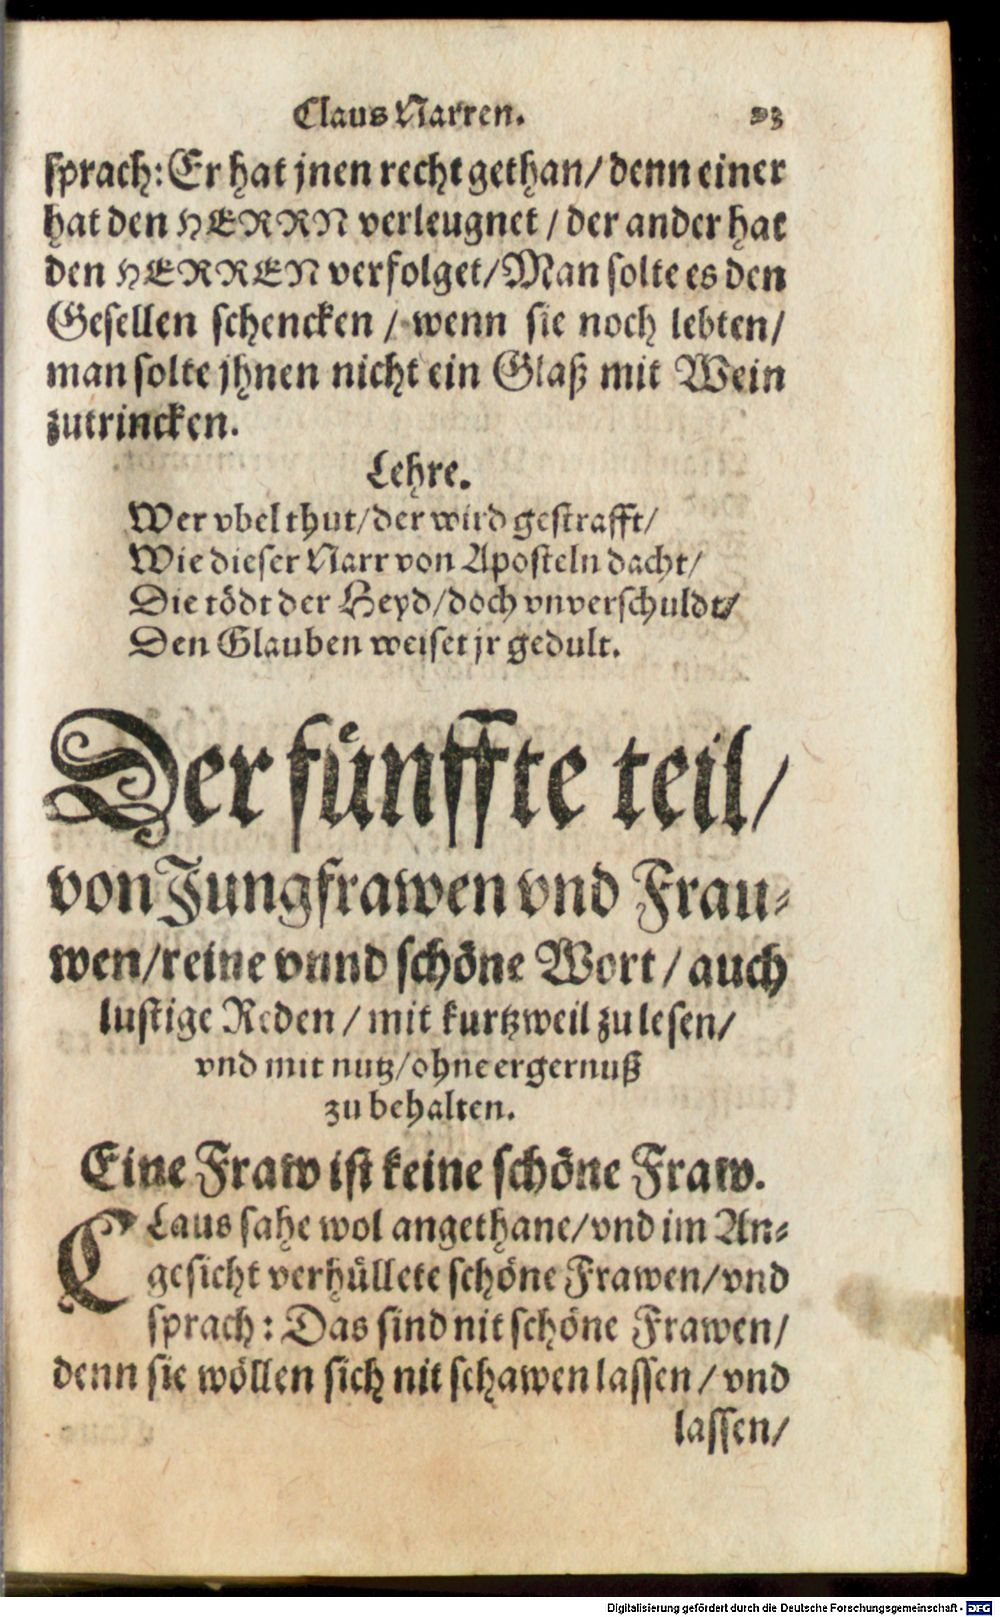 Claus Narren. 93
sprach: Er hat jnen recht gethan/ denn einer
hat den HERRN verleugnet / der ander hat
den HERREN verfolget/ Man solte es den
Gesellen schencken / wenn sie noch lebten/
man solte jhnen nicht ein Glaß mit Wein
zutrincken.
Lehre.
Wer vbel thut/ der wird gestrafft/
Wie dieser Narr von Aposteln dacht/
Die tödt der Heyd/ doch vnverschuldt/
Den Glauben weiset jr gedult.
Der fünffte teil/
von Jungfrawen vnd Frau-
wen/ reine vnnd schöne Wort / auch
lustige Reden / mit kurtzweil zu lesen/
vnd mit nutz/ ohne ergernuß
zu behalten.
Eine Fraw ist keine schöne Fraw.
CLaus sahe wol angethane/ vnd im An-
gesicht verhüllete schöne Frawen/ vnd
sprach: Das sind nit schöne Frawen/
denn sie wöllen sich nit schawen lassen / vnd
lassen/
Digitalisierung gefördert durch die Deutsche Forschungsgemeinschaft - DFG